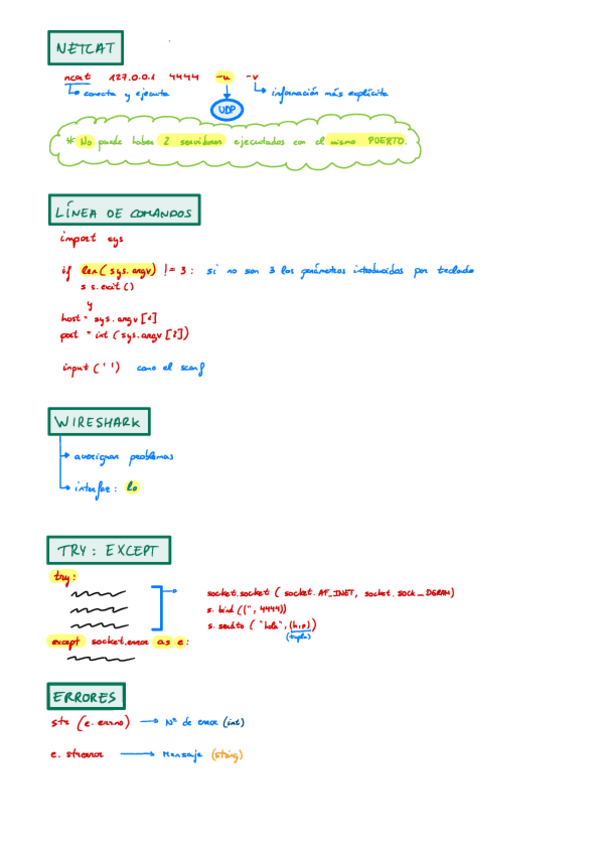 NETCAT
ncat 127.0.0.1 4444 -u -v
conecta y ejecuta
información más explícita
UDP
* No puede haber 2 servidores ejecutados con el mismo PUERTO.
LÍNEA DE COMANDOS
import sys
if len(sys.argv) != 3: si no son 3 los parámetros introducidos por teclado
s.exit()
y
host = sys.argv[1]
port = int(sys.argv[2])
input(' ') como el scanf
WIRESHARK
averiguar problemas
interfaz: lo
TRY: EXCEPT
try:
socket.socket(socket.AF_INET, socket.SOCK_DGRAM)
s.bind(('', 4444))
s.sendto("hola", (h,p))
(tupla)
except socket.error as e:
ERRORES
str(e.errno) Nº de error (int)
e.strerror Mensaje (string)